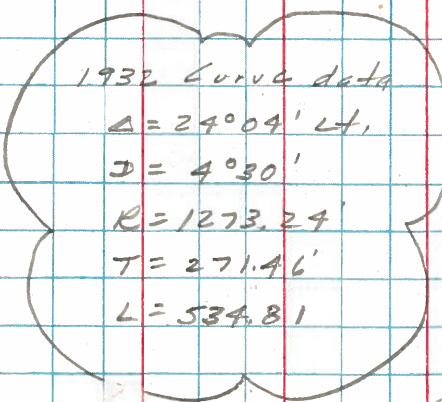 1932 Curve data
Δ = 24°04' Lt.
D = 4°30'
R = 1273.24'
T = 271.46'
L = 534.81